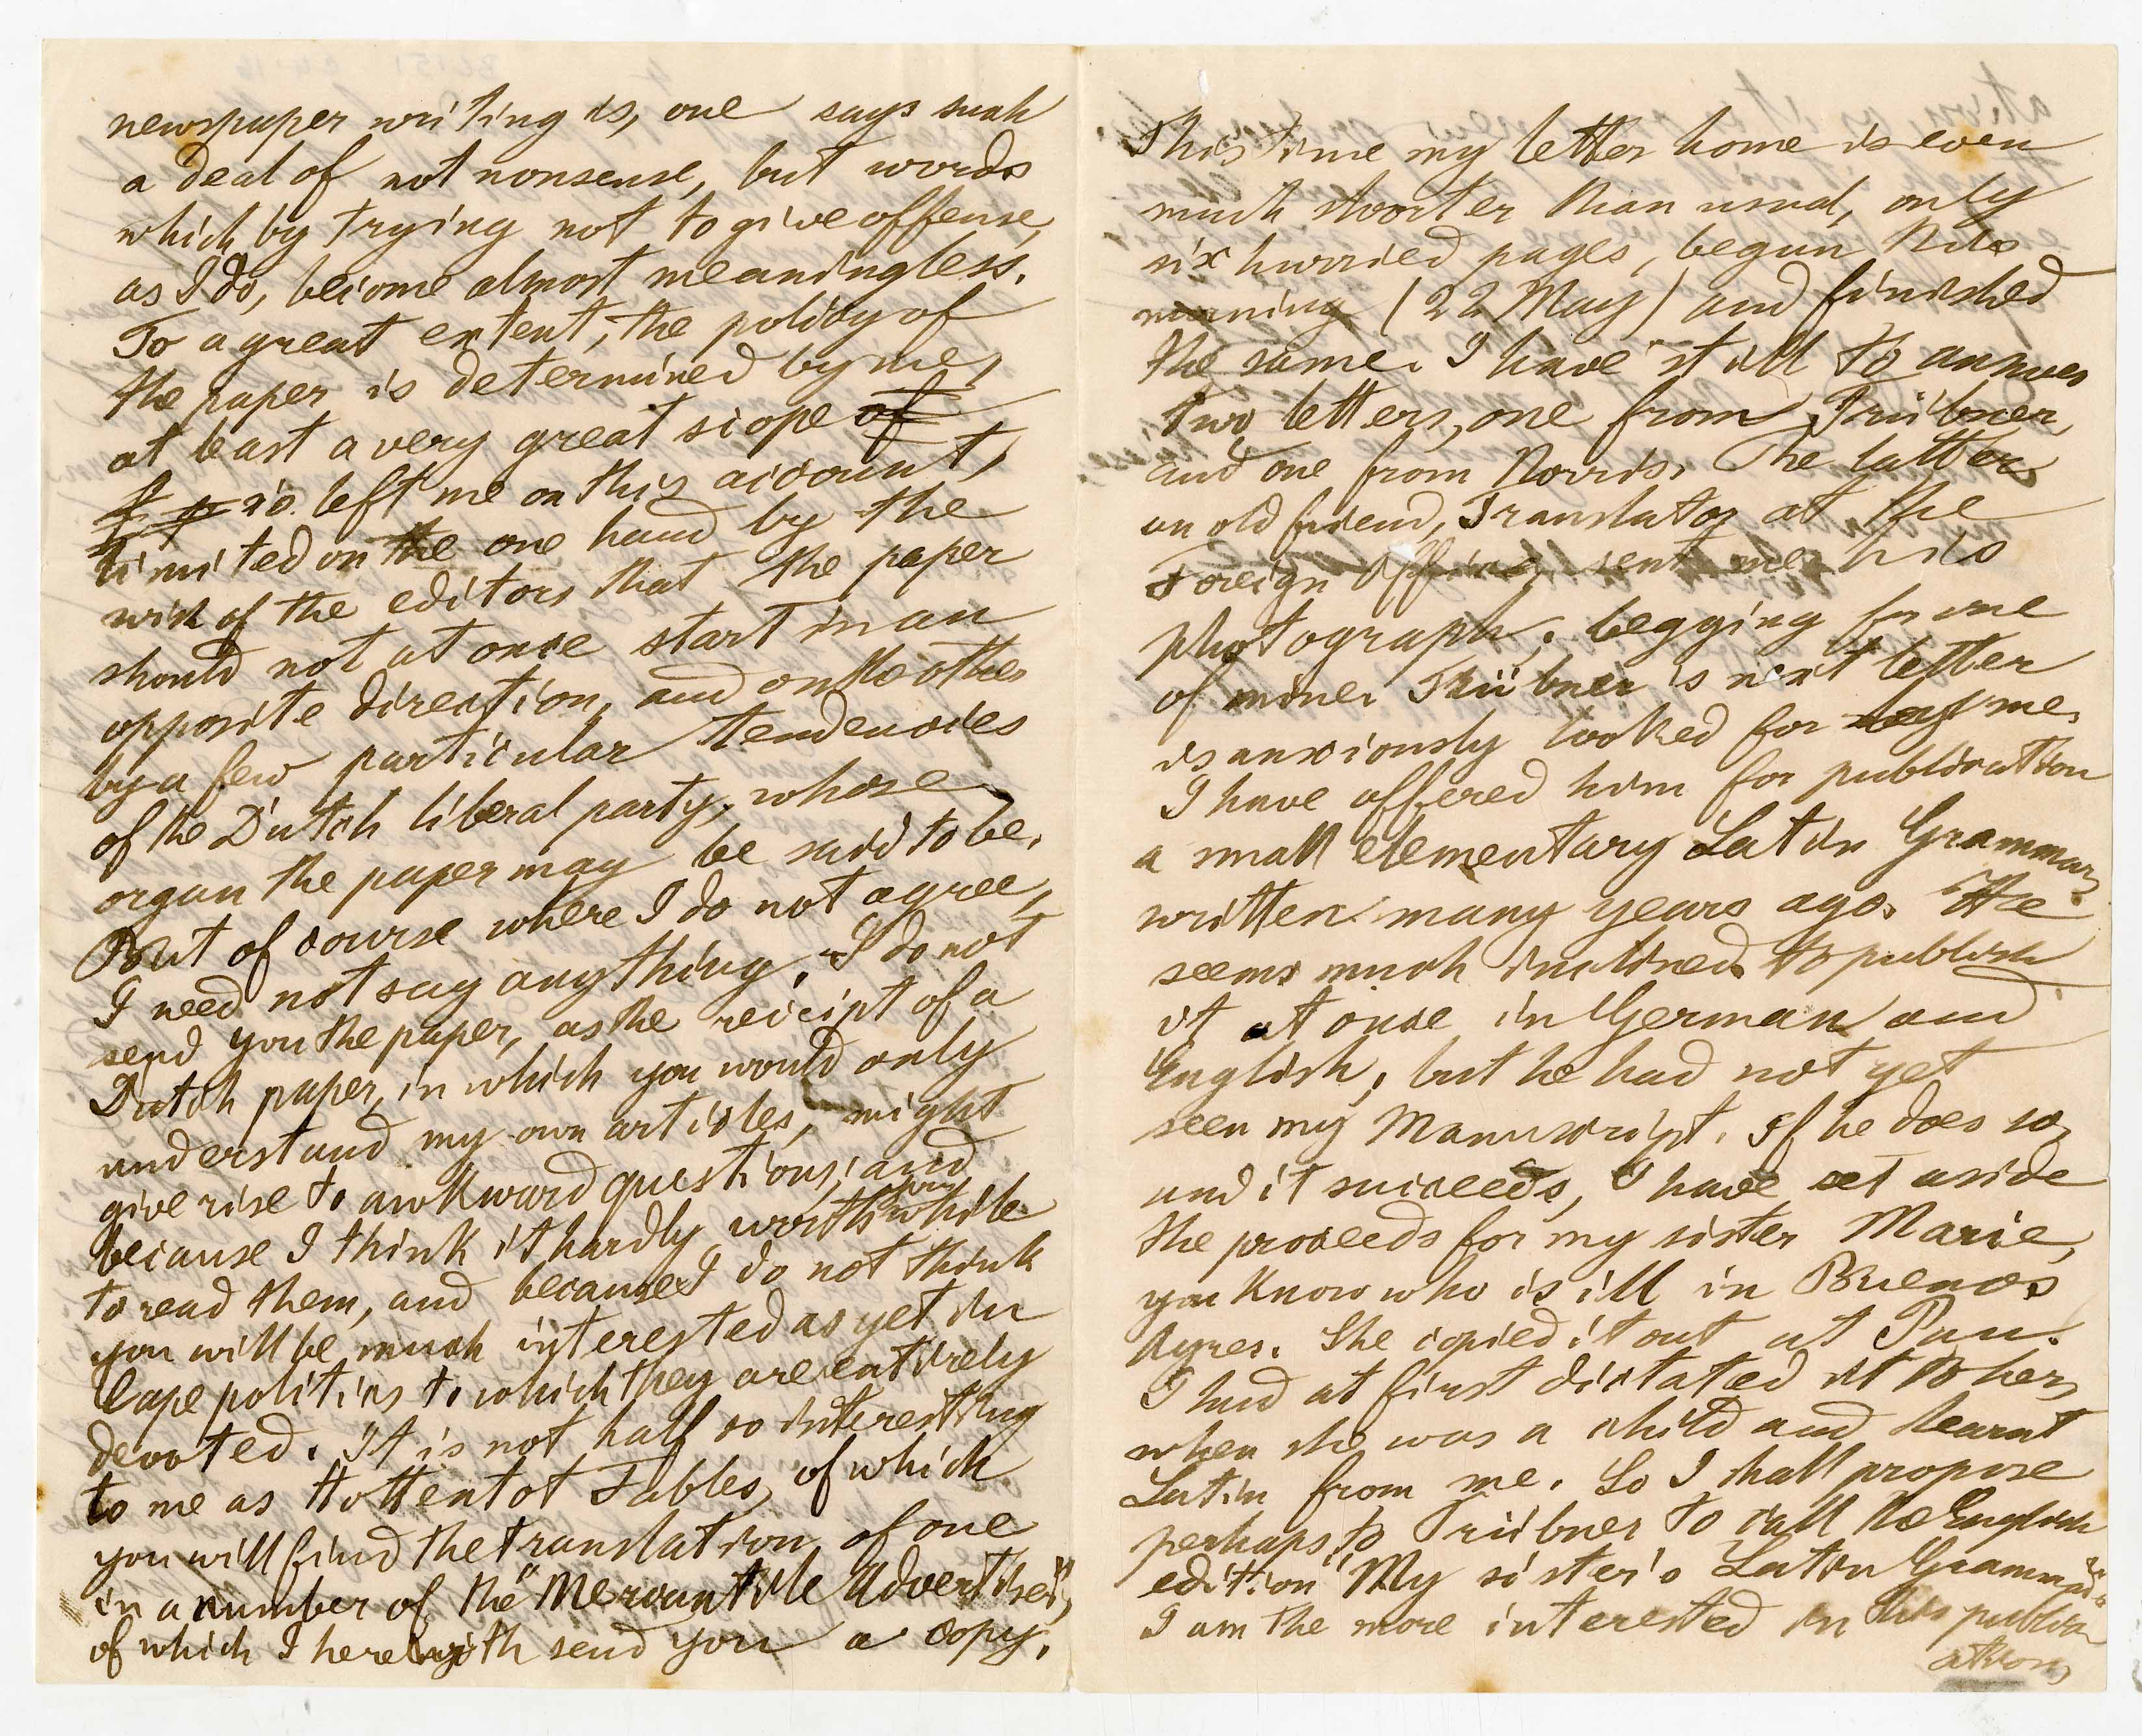 newspaper writing is, one says such
a deal of not nonsense, but words
which by trying not to give offense,
as I do, become almost meaningless.
To a great extent, the policy of
the paper is determined by me,
at least a very great scope of
is left me on this account,
limited on the one hand by the
wish of the editors that the paper
should not at once start in an
opposite direction, and on the other
by a few particular tendencies
of the Dutch liberal party, whose
organ the paper may be said to be.
But of course where I do not agree,
I need not say anything. I do not
send you the paper, as the receipt of a
Dutch paper, in which you would only
understand my own articles, might
give rise to awkward questions; and
because I think it hardly worth your while
to read them, and because I do not think
you will be much interested as yet in
Cape politics to which they are entirely
devoted. It is not half so interesting
to me as Hottentot Fables, of which
you will find the translation of one
in a number of the "Mercantile Advertiser",
of which I herewith send you a copy.
This time my letter home is even
much shorter than usual, only
six hurried pages, begun this
morning (22 May) and finished
the same. I have still to answer
two letters, one from Trübner,
and one from Norris. The latter
an old friend, Translator at the
Foreign Office, sent me his
photograph, begging for one
of mine. Trübner's next letter
is anxiously looked for by me.
I have offered him for publication
a small elementary Latin Grammar,
written many years ago. He
seems much inclined to publish
it at once in German and
English, but he had not yet
seen my Manuscript. If he does so,
and it succeeds, I have set aside
the proceeds for my sister Marie,
you know who is ill in Buenos
Ayres. She copied it out at Pau.
I had at first dictated it to her,
when she was a child and learnt
Latin from me. So I shall propose
perhaps to Trübner to call the English
edition "My sister's Latin Grammar".
I am the more interested in this public
ation,